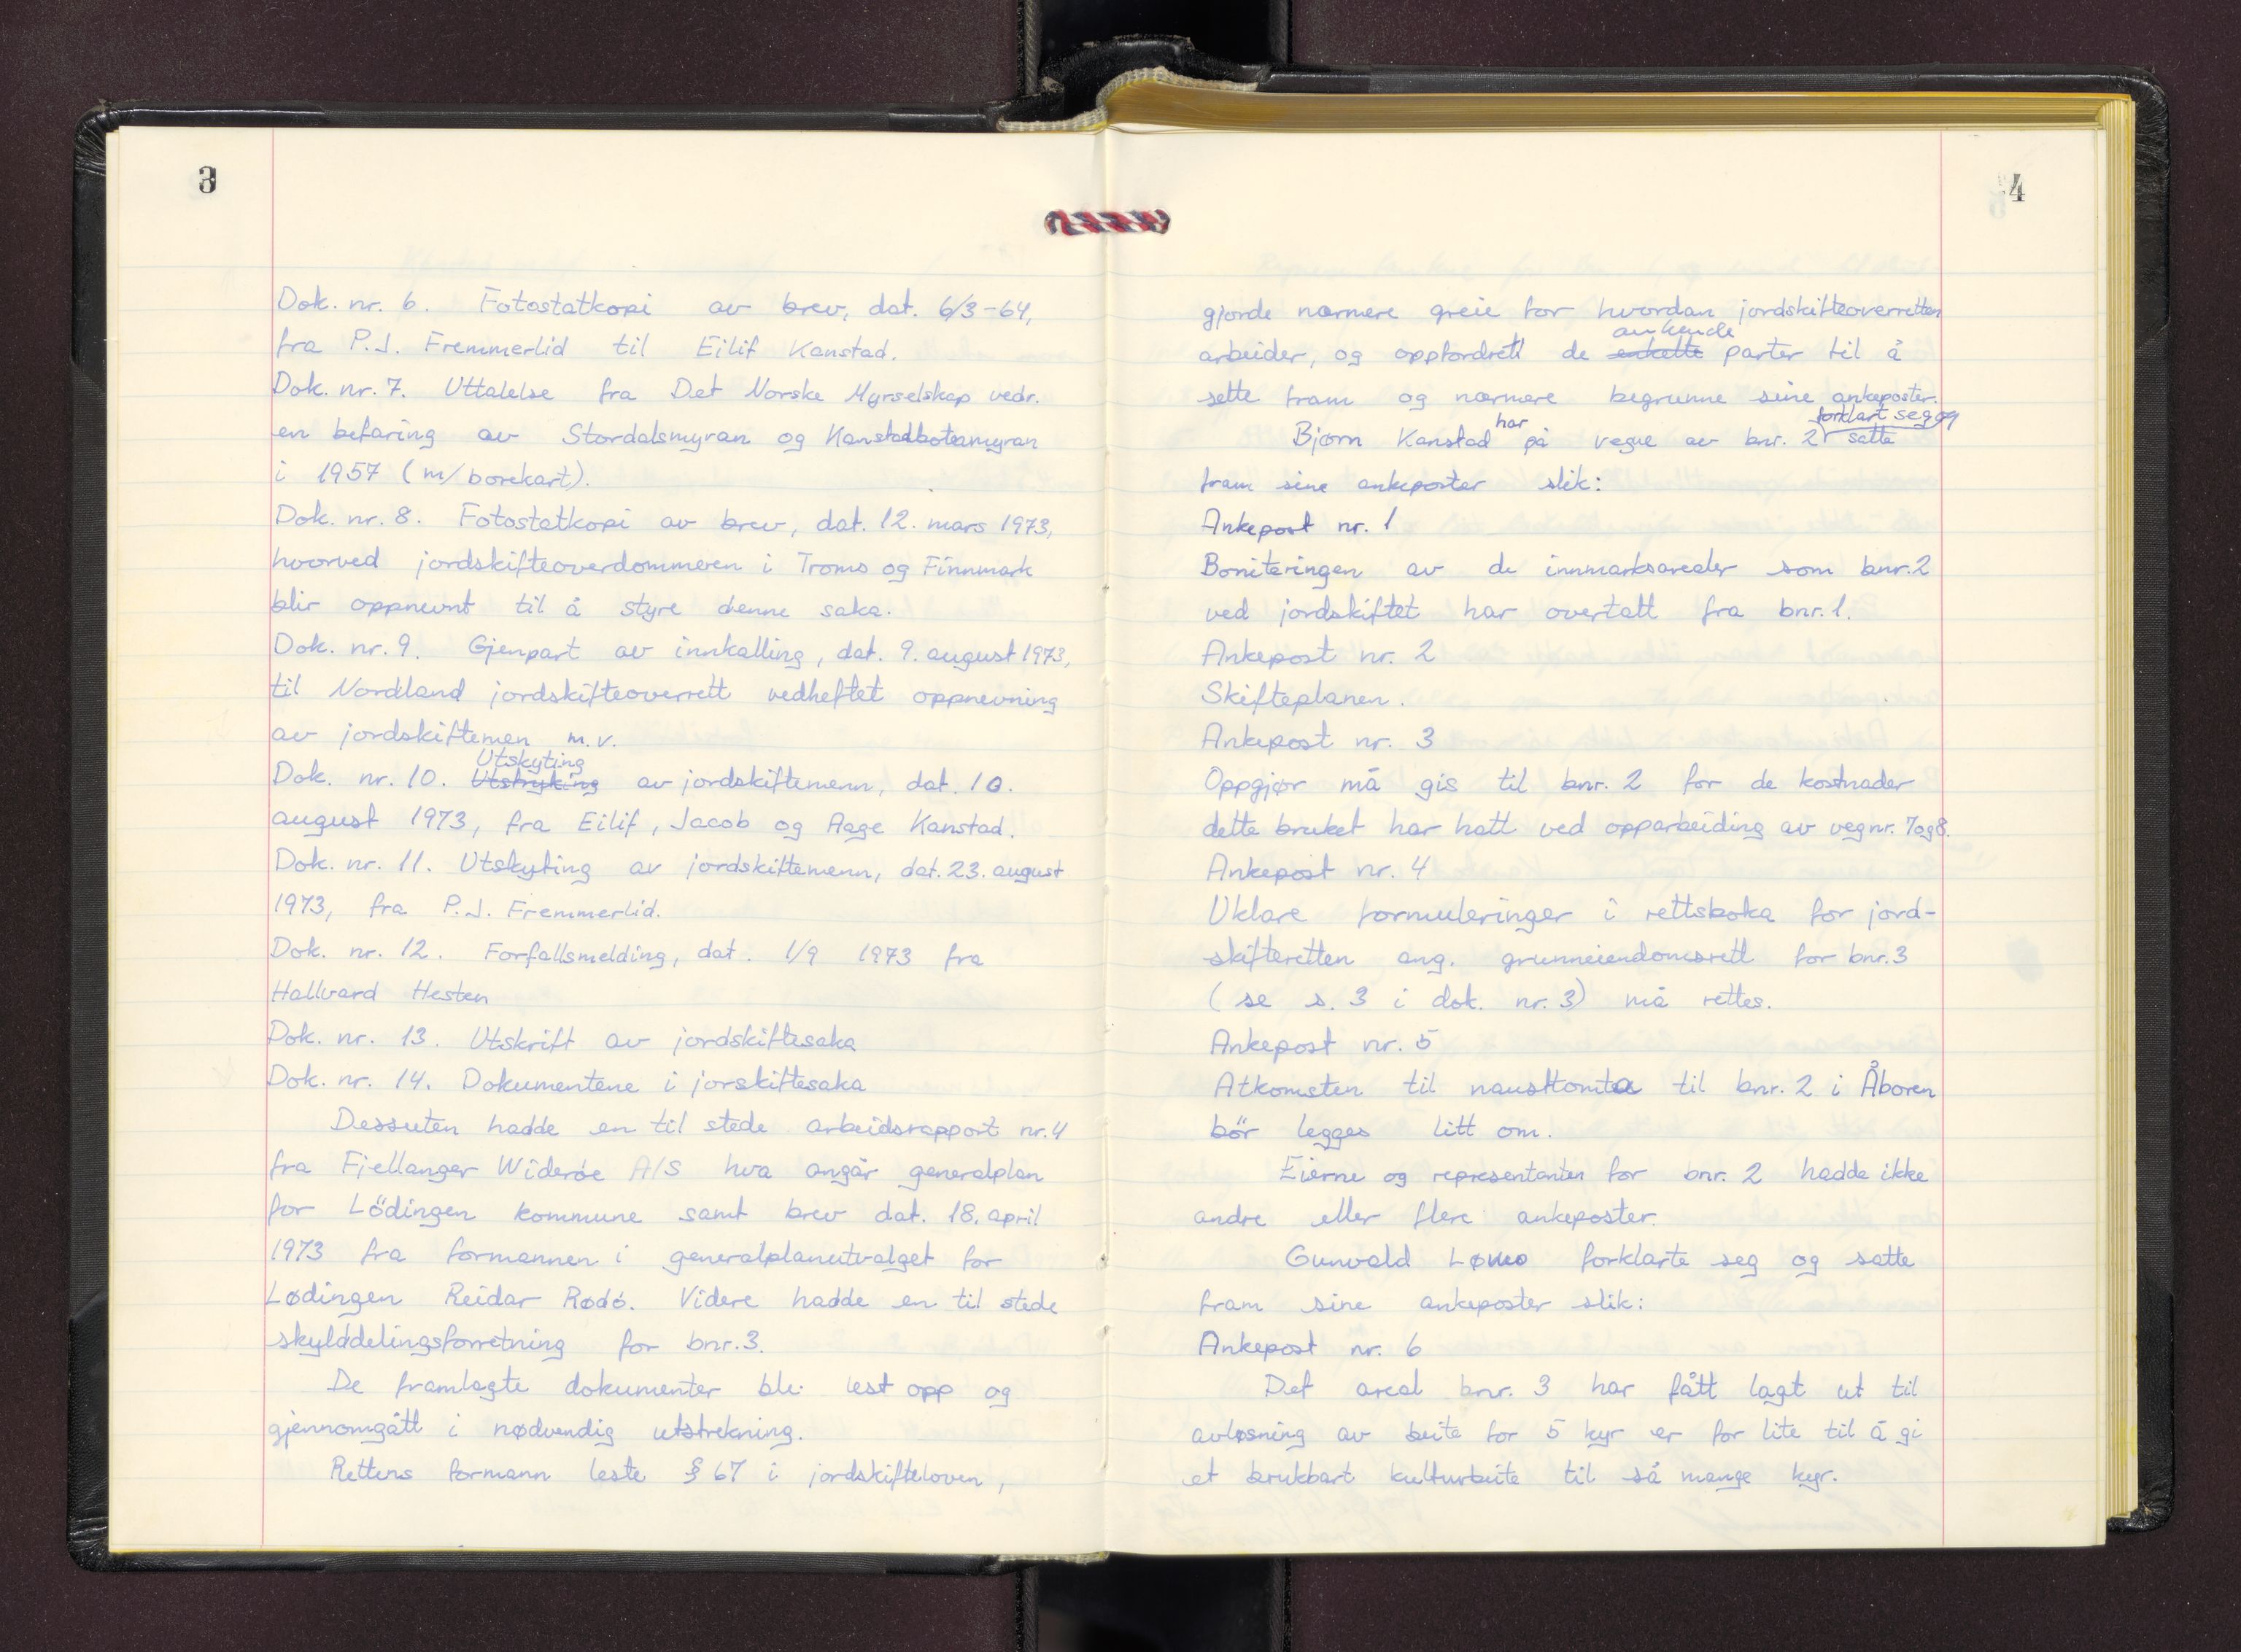 3
Dok. nr. 6. Fotostatkopi av brev, dat. 6/3-64,
fra P.J. Fremmerlid til Eilif Kanstad.
Dok. nr. 7. Uttalelse fra Det Norske Myrselskap vedr.
en befaring av Stordalsmyran og Kanstadbotsmyran
i 1957 (m/borekart).
Dok. nr. 8. Fotostatkopi av brev, dat. 12. mars 1973,
hvorved jordskifteoverdommeren i Troms og Finnmark
blir oppnevnt til å styre denne saka.
Dok. nr. 9. Gjenpart av innkalling, dat. 9. august 1973,
til Nordland jordskifteoverrett vedheftet oppnevning
av jordskiftemen m.v.
Utskyting
Dok. nr. 10. Utstryking av jordskiftemenn, dat. 10.
august 1973, fra Eilif, Jacob og Aage Kanstad.
Dok. nr. 11. Utskyting av jordskiftemenn, dat. 23. august
1973, fra P.J. Fremmerlid.
Dok. nr. 12. Forfallsmelding, dat. 1/9 1973 fra
Hallvard Hesten
Dok. nr. 13. Utskrift av jordskiftesaka
Dok. nr. 14. Dokumentene i jorskiftesaka
Dessuten hadde en til stede arbeidsrapport nr. 4
fra Fjellanger Widerøe A/S hva angår generalplan
for Lödingen kommune samt brev dat. 18. april
1973 fra formannen i generalplanutvalget for
Lødingen Reidar Rødø. Videre hadde en til stede
skylddelingsforretning for bnr. 3.
De framlagte dokumenter ble lest opp og
gjennomgått i nødvendig utstrekning.
Rettens formann leste § 67 i jordskifteloven,
4
gjorde nærmere greie for hvordan jordskifteoverretten
ankende
arbeider, og oppfordrett de enkelte parter til å
sette fram og nærmere begrunne sine ankeposter.
har forklart seg og
Bjørn Kanstad på vegne av bnr. 2 satte
fram sine ankeposter slik:
Ankepost nr. 1
Boniteringen av de innmarksarealer som bnr. 2
ved jordskiftet har overtatt fra bnr. 1.
Ankepost nr. 2
Skifteplanen.
Ankepost nr. 3
Oppgjør må gis til bnr. 2 for de kostnader
dette bruket har hatt ved opparbeiding av veg nr. 7 og 8.
Ankepost nr. 4
Uklare formuleringer i rettsboka for jord-
skifteretten ang. grunneiendomsrett for bnr. 3
(se s. 3 i dok. nr. 3) må rettes.
Ankepost nr. 5
Atkomsten til nausttomta til bnr. 2 i Åboren
bör legges litt om.
Eierne og representanten for bnr. 2 hadde ikke
andre eller flere ankeposter.
Gunvald Lømo forklarte seg og satte
fram sine ankeposter slik:
Ankepost nr. 6
Det areal bnr. 3 har fått lagt ut til
avløsning av beite for 5 kyr er for lite til å gi
et brukbart kulturbeite til så mange kyr.